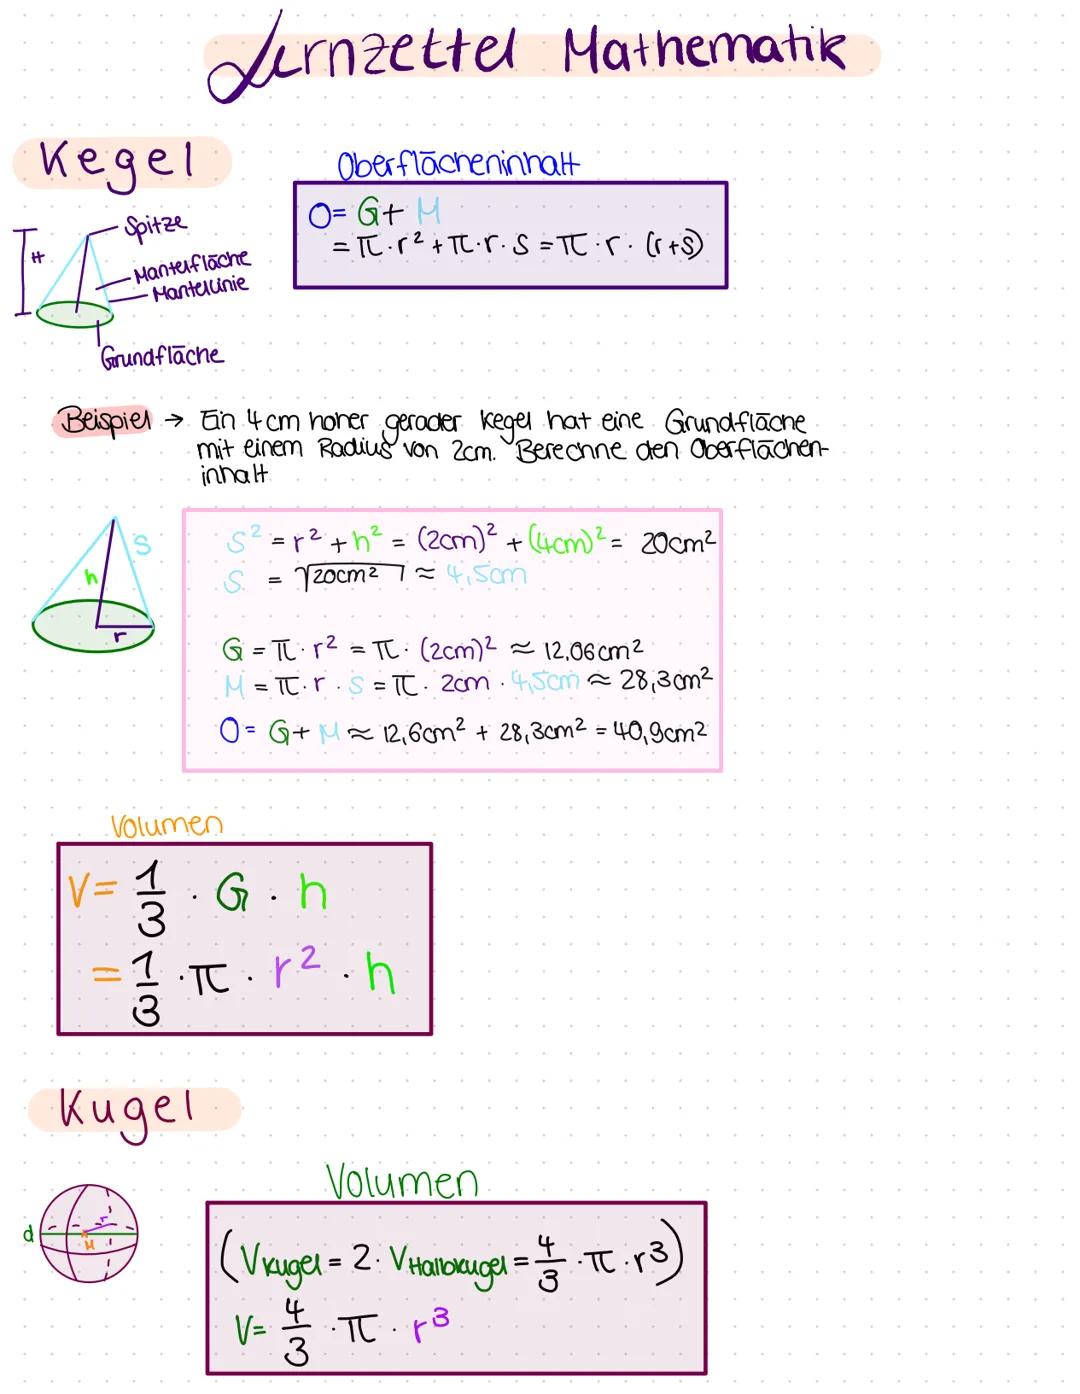 Lernzettel Mathematik
Kegel
Oberflächeninhalt
O= G+ M
= π·r² + π·r·s = π·r·(r+s)
H
Spitze
Mantelfläche
Mantellinie
Grundfläche
Beispiel → Ein 4cm hoher gerader Kegel hat eine Grundfläche
mit einem Radius von 2cm. Berechne den Oberflächen-
inhalt
s
h
r
S² = r² + h² = (2cm)² + (4cm)² = 20cm²
S = √20cm² ≈ 4,5cm
G = π·r² = π·(2cm)² ≈ 12,06cm²
M = π·r·s = π·2cm·4,5cm ≈ 28,3cm²
O= G+ M ≈ 12,6cm² + 28,3cm² = 40,9cm²
Volumen
V= 1/3 · G · h
= 1/3 · π · r² · h
Kugel
d
r
M
Volumen
(VKugel = 2· VHalbkugel = 4/3 · π · r³)
V= 4/3 · π · r³